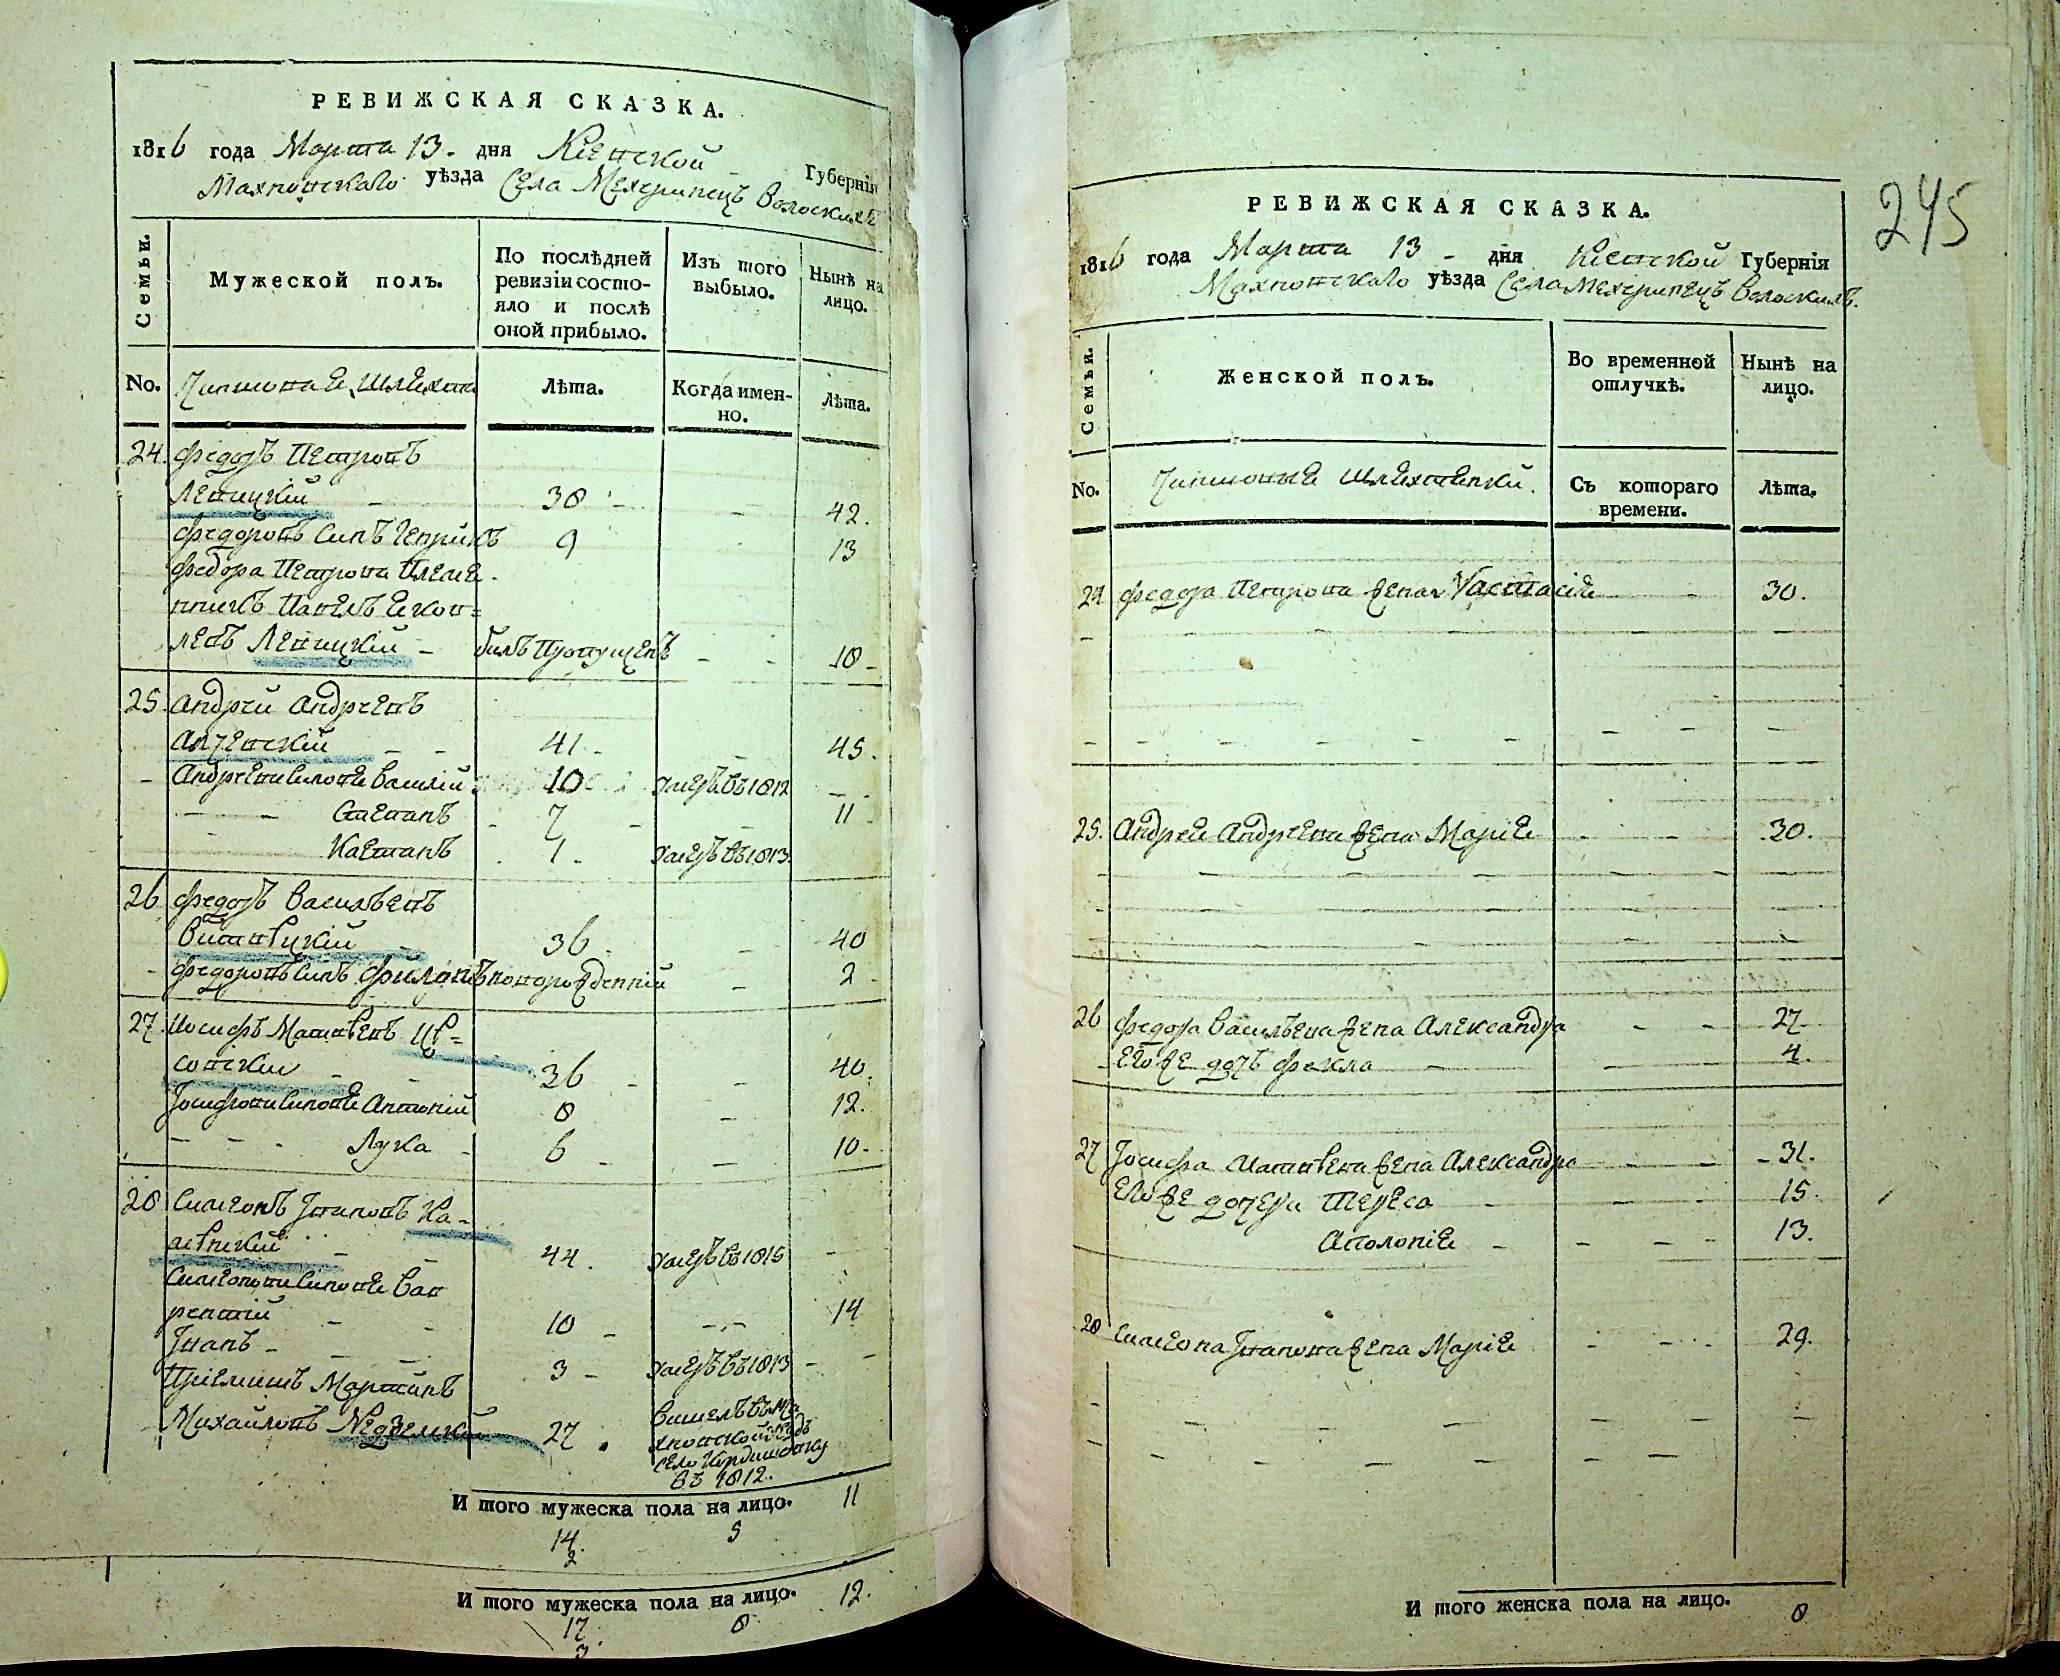 РЕВИЖСКАЯ СКАЗКА.
1816 года Марта 13. дня Кіевской Губерніи
Махновскаго уѣзда Села Межеринецъ Волоскихъ
Семьи.
Мужеской полъ.
По послѣдней ревизіи состо-
яло и послѣ
оной прибыло.
Изъ того
выбыло.
Нынѣ на
лицо.
No.
Чиншовая Шляхта
Лѣта.
Когда имен-
но.
Лѣта.
24. Федоръ Петровъ
Левицкій - 38 - - 42.
Федоровъ Синъ Генрикъ 9 13
Федора Петрова Племя-
нникъ Павелъ Яков=
левъ Левицкій - билъ пропущенъ - - 18 -
25. Андрей Андреевъ
- - 41 - - 45.
- Андреевы Синове Василій 10 умеръ въ 1812 - -
- - Степанъ - 7 - - 11 -
Каетанъ 1. умеръ въ 1813.
26 Федоръ Васильевъ
Витвѣцкій - 36 - - 40
- Федоровъ Синъ новорожденній - 2 -
27. Иосифъ Матвѣевъ
- - 36 - - 40.
Іосифови Синове Антоній 8 - 12.
- - - Лука - 6 - - 10 -
28 Симеонъ Ивановъ Ка-
- - 44. умеръ въ 1815 - -
Симеонови Синове Вав
рентій - - 10 - - - 14
Іванъ - - - 3 - умеръ въ 1813 - -
Пріемишъ Мартинъ
- Михайловъ Недзелскій 27. вишелъ въ Ма
хновской уездъ
село
въ 1812.
И того мужеска пола на лицо. 11
14. 5
2
И того мужеска пола на лицо. 12.
17. 8
3
245
РЕВИЖСКАЯ СКАЗКА.
1816 года Марта 13 - дня Кіевской Губерніи
Махновскаго уѣзда Села Межеринецъ Волоскихъ.
Семьи.
Женской полъ.
Во временной
отлучкѣ.
Нынѣ на
лицо.
No.
Чиншовые Шляхтянки.
Съ котораго
времени.
Лѣта.
24 Федора Петрова жена Настасія - 30.
25. Андрея Андреева жена Марія - - - 30.
26 Федора Васильева жена Александра - - 27
- Его же дочъ Фекла - - 4.
27 Іосифа Матвѣева жена Александра - - - 31.
Его же дочери Тереса - - - 15.
Аполонія - - - - 13.
28 Симеона Іванова жена Марія - - - - 29.
И того женска пола на лицо. 8